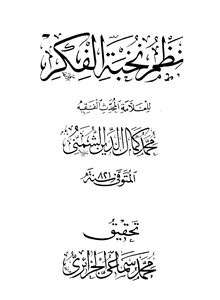 نظم نخبة الفكر
للعلامة المحدث الفقيه
محمد كمال الدين الشمني
المتوفى سنة ٨٢١ هـ
تحقيق
محمد سماعي الجزائري